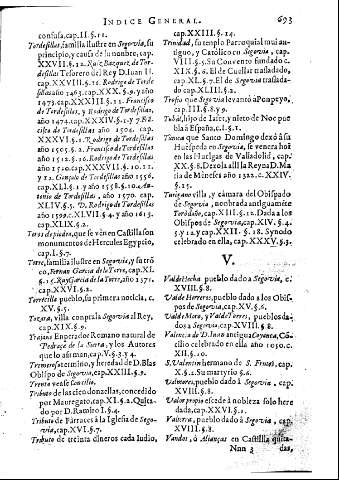 INDICE GENERAL. 693
confusa, cap. II. §. 12.
Tordesillas, familia ilustre en Segovia, su
principio, y causa de su nombre, cap.
XXVII. §. 12. Ruiz Bazquez, de Tor-
desillas Tesorero del Rey D. Iuan II.
cap. XXVIII. §. 16. Rodrigo de Torde
sillas año 1463. cap. XXX. §. 9. y año
1473. cap. XXXIII. §. 11. Francisco
de Tordesillas, y Rodrigo de Tordesillas,
año 1474. cap. XXXIV. §. 1. y 7. Fran
cisco de Tordesillas año 1504. cap.
XXXVI. §. 1. Rodrigo de Tordesillas
año 1505. §. 2. Francisco de Tordesillas
año 1512. §. 16. Rodrigo de Tordesillas
año 1520. cap. XXXVII. §. 10. 11.
y 12. Gonçalo de Tordesillas año 1556.
cap. XLI. §. 1. y año 1558. §. 10. An-
tonio de Tordesillas, año 1570. cap.
XLIV. §. 5. D. Rodrigo de Tordesillas
año 1599. c. XLVII §. 4. y año 1613.
cap. XLIX. §. 2.
Toros de piedra, que se vèn en Castilla son
monumentos de Hercules Egypcio,
cap. I. §. 7.
Torre, familia ilustre en Segovia, y su trò
co, Fernan Garcia de la Torre, cap. XI.
§. 15. Ruy Garcia de la Torre, año 1371.
cap. XXVI. §. 2.
Torrecilla pueblo, su primera noticia, c.
XV. §. 5.
Tozara, villa compra la Segovia al Rey,
cap. XIX. §. 9.
Trajano Emperador Romano natural de
Pedraza de la Sierra, y los Autores
que lo afirman, cap. V. §. 3. y 4.
Tremeroso termino, y heredad de D. Blas
Obispo de Segovia, cap. XXIII. §. 9.
Trento vease Concilio.
Tributo de las cien donzellas, concedido
por Mauregato, cap. XI. §. 2. Quitado
por D. Ramiro I. §. 4.
Tributo de Parraces à la Iglesia de Sego-
via, cap. XVI. §. 7.
Tributo de treinta dineros cada Iudio,
cap. XXIII. §. 14.
Trinidad, su templo Parroquial mui an-
tiguo, y Católico en Segovia, cap.
VIII. §. 5. Su Convento fundado c.
XIX. §. 6. El de Cuellar trasladado,
cap. XL. §. 7. El de Segovia traslada-
do, cap. XLIII. §. 2.
Trofeo que Segovia levantò à Pompeyo,
cap. III. §. 8. y 9.
Tubál, hijo de Iafet, y nieto de Noe pue
bla à España, c. I. §. 1.
Tunica que Santo Domingo dexò à su
Huespeda en Segovia, se venera hoi
en las Huelgas de Valladolid, cap.
XX. §. 8. Dexòla alli la Reyna D. Ma
ria de Meneses año 1322. c. XXIV.
§. 15.
Turegano villa, y càmara del Obispado
de Segovia, nombrada antiguamète
Torodano, cap. XIII. §. 12. Dada a los
Obispos de Segovia, cap. XIV. §. 4.
5. y 12. cap. XXII. §. 18. Synodo
celebrado en ella, cap. XXXV. §. 3.
V.
Val de Hacha pueblo dado a Segovia, c.
XVIII. §. 8.
Val de Herreros, pueblo dado a los Obis-
pos de Segovia, cap. XV. §. 6.
Val de Moro, y Val de Torres, pueblos da-
dos a Segovia, cap. XVIII. §. 8.
Valencia de D. Iuan antigua Coyanca, Có-
cilio celebrado en ella año 1050. c.
XII. §. 10.
S. Valentin hermano de S. Frutos, cap.
X. §. 2. Su martyrio §. 6.
Valmores, pueblo dado à Segovia, cap.
XVIII. §. 8.
Valor propio escede à nobleza solo here
dada, cap. XXVI. §. 1.
Valtierra, pueblo dado à Segovia, cap.
XVIII. §. 8.
Vandos, ò Alianças en Castilla quita-
Nnn 3 das,